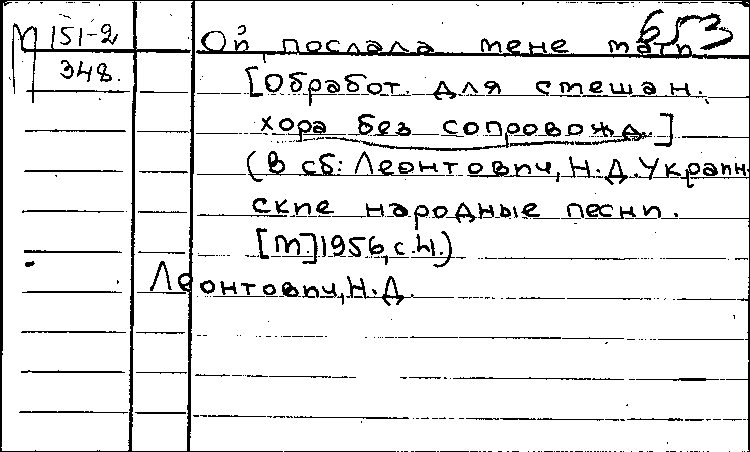 М 151-2
348.
653
Ой послала мене мати.
[Обработ. для смешан.
хора без сопровожд.]
(В сб: Леонтович, Н.Д. Украин-
ские народные песни.
[М.] 1956, с.41.)
Леонтович, Н.Д.